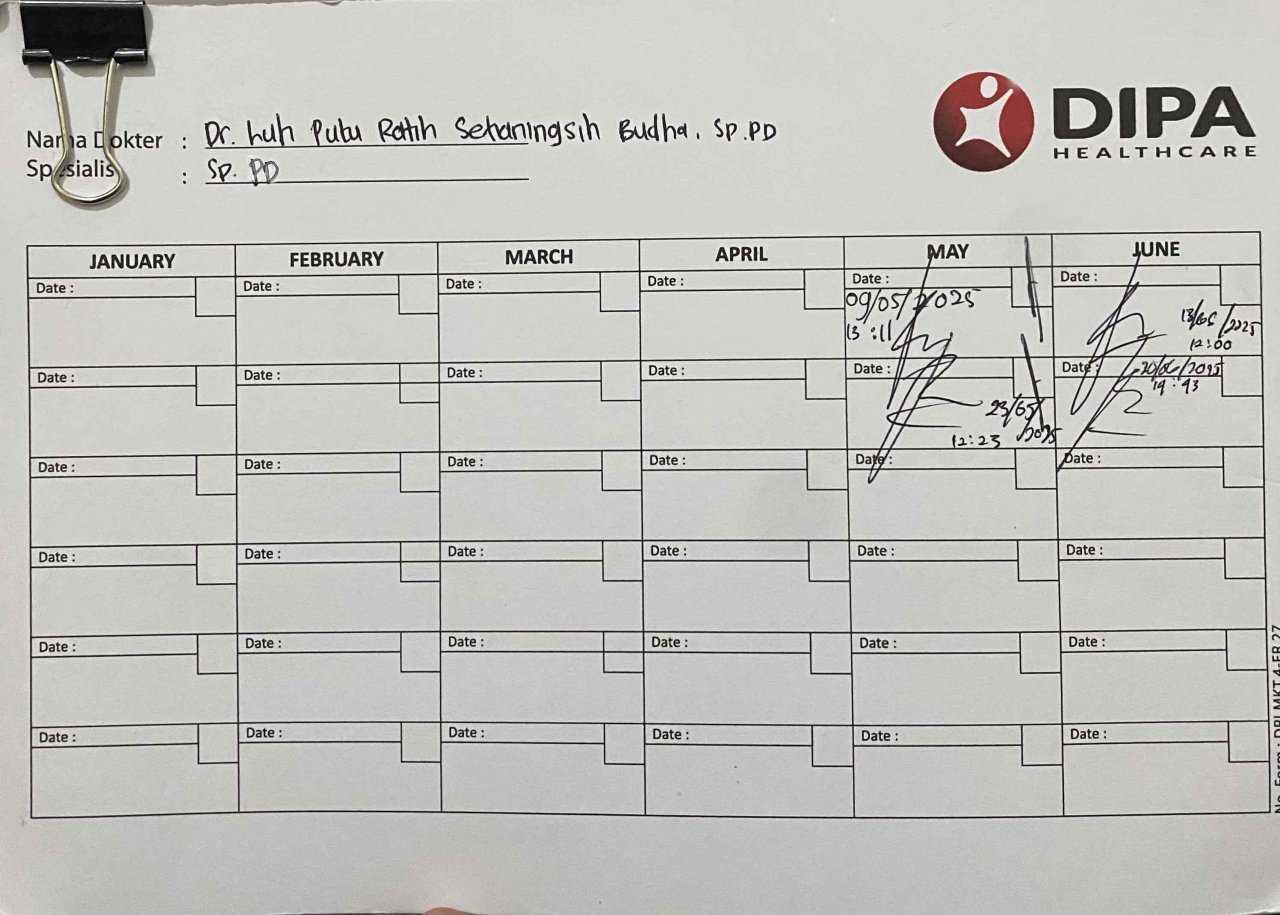 DIPA
HEALTHCARE
Nama Dokter : Dr. Luh Putu Ratih Setianingsih Budha, Sp.PD
Spesialis : Sp. PD
JANUARY FEBRUARY MARCH APRIL MAY JUNE
Date : Date : Date : Date : Date : Date :
09/05/2025
13:11
13/06/2025
12:00
Date : Date : Date : Date : Date : Date :
23/05/2025
12:23
20/06/2025
14:43
Date : Date : Date : Date : Date : Date :
Date : Date : Date : Date : Date : Date :
Date : Date : Date : Date : Date : Date :
Date : Date : Date : Date : Date : Date :
No. Form : DPI-MKT.4-FR.27